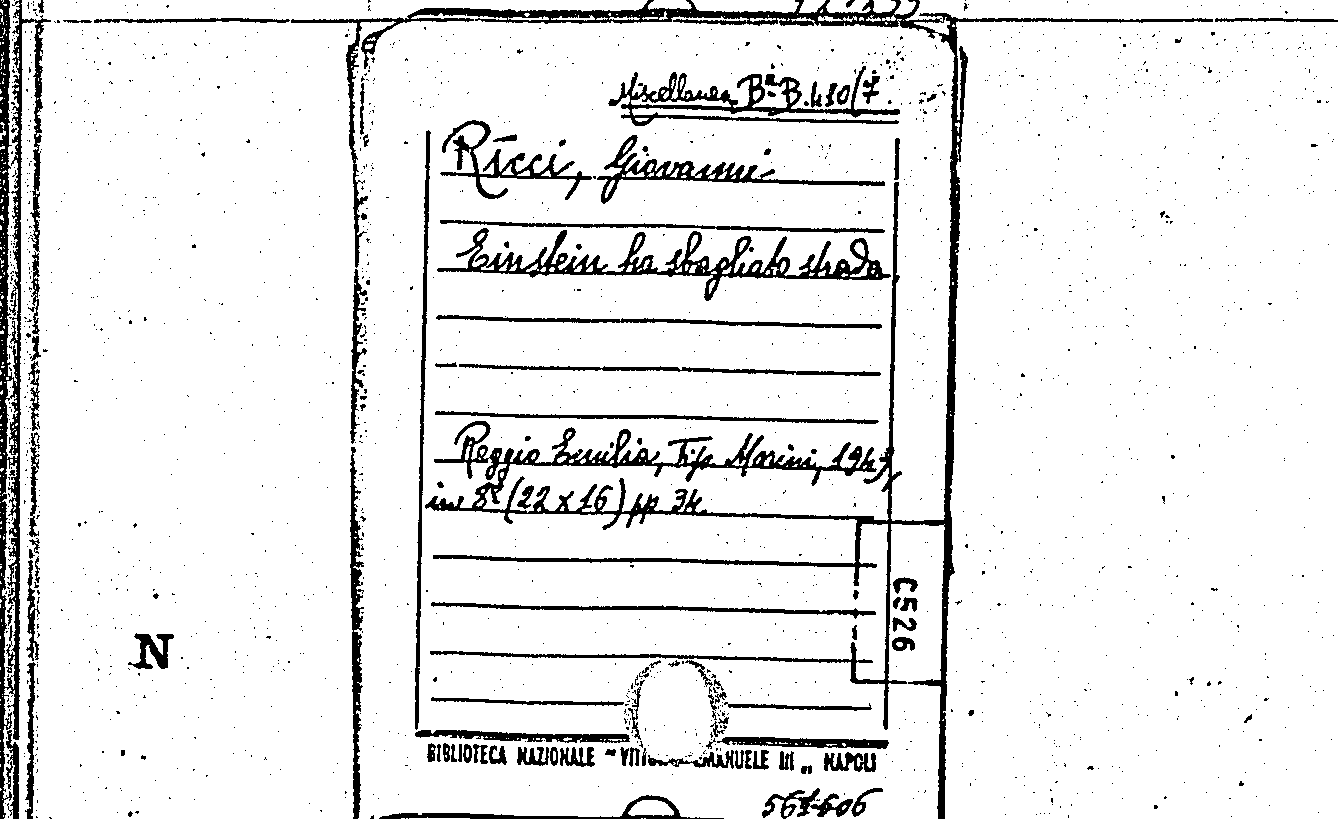 Miscellanea Bª B. 410/7.
Ricci, Giovanni
Einstein ha sbagliato strada.
Reggio Emilia, Tip. Morini, 1947,
in 8º (22 x 16) pp 34.
C526
N
BIBLIOTECA NAZIONALE "VITTO EMANUELE III" NAPOLI